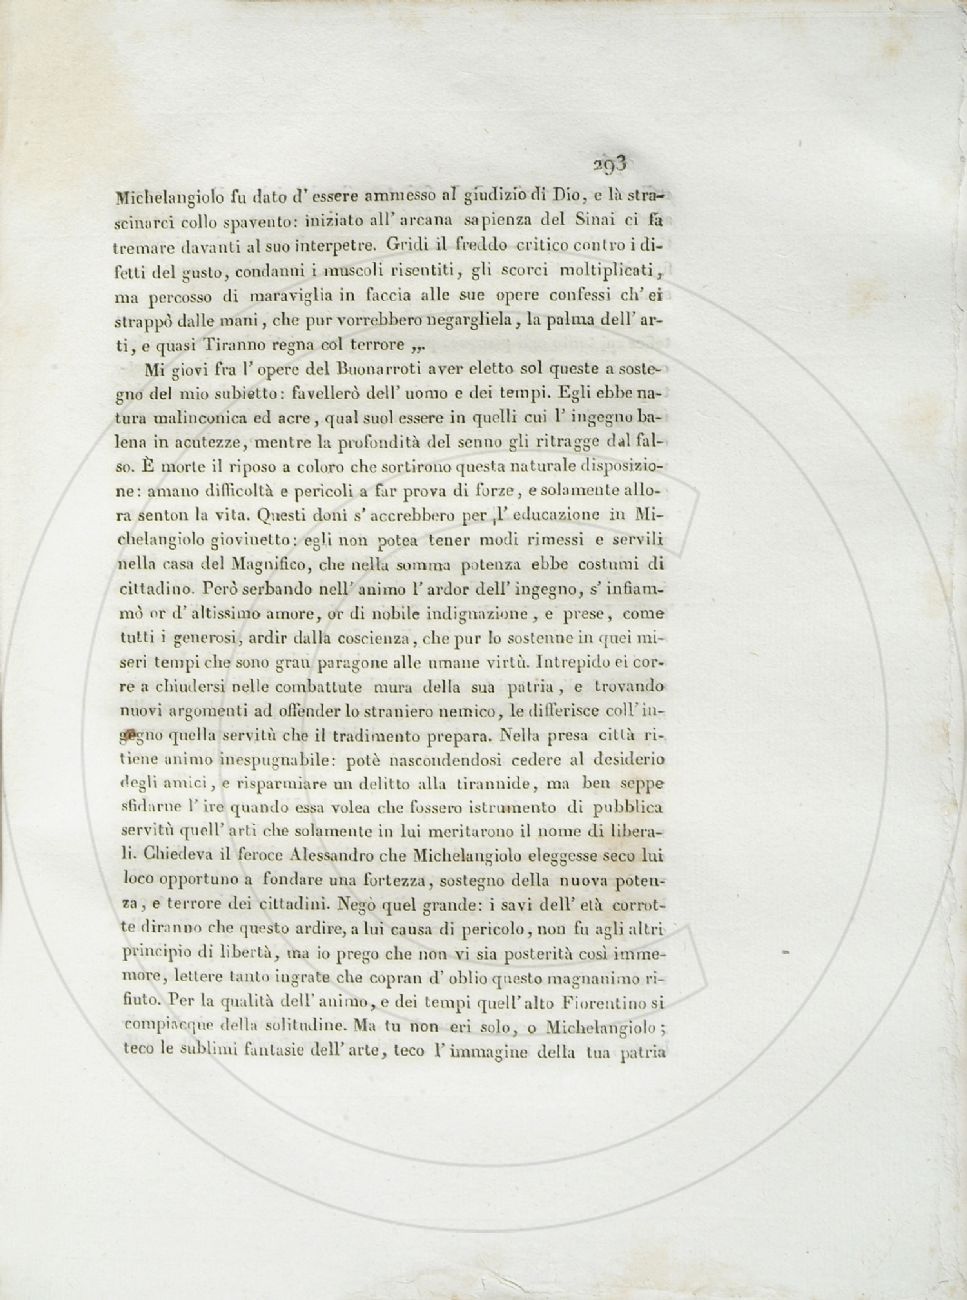 293
Michelangiolo fu dato d' essere ammesso al giudizio di Dio, e là stra-
scinarci collo spavento: iniziato all' arcana sapienza del Sinai ci fa
tremare davanti al suo interpetre. Gridi il freddo critico contro i di-
fetti del gusto, condanni i muscoli risentiti, gli scorci moltiplicati,
ma percosso di maraviglia in faccia alle sue opere confessi ch' ei
strappò dalle mani, che pur vorrebbero negargliela, la palma dell' ar-
ti, e quasi Tiranno regna col terrore „.
Mi giovi fra l' opere del Buonarroti aver eletto sol queste a soste-
gno del mio subietto: favellerò dell' uomo e dei tempi. Egli ebbe na-
tura malinconica ed acre, qual suol essere in quelli cui l' ingegno ba-
lena in acutezze, mentre la profondità del senno gli ritragge dal fal-
so. È morte il riposo a coloro che sortirono questa naturale disposizio-
ne: amano difficoltà e pericoli a far prova di forze, e solamente allo-
ra senton la vita. Questi doni s' accrebbero per l' educazione in Mi-
chelangiolo giovinetto: egli non potea tener modi rimessi e servili
nella casa del Magnifico, che nella somma potenza ebbe costumi di
cittadino. Però serbando nell' animo l' ardor dell' ingegno, s' infiam-
mò or d' altissimo amore, or di nobile indignazione, e prese, come
tutti i generosi, ardir dalla coscienza, che pur lo sostenne in quei mi-
seri tempi che sono gran paragone alle umane virtù. Intrepido ei cor-
re a chiudersi nelle combattute mura della sua patria, e trovando
nuovi argomenti ad offender lo straniero nemico, le differisce coll' in-
gegno quella servitù che il tradimento prepara. Nella presa città ri-
tiene animo inespugnabile: potè nascondendosi cedere al desiderio
degli amici, e risparmiare un delitto alla tirannide, ma ben seppe
sfidarne l' ire quando essa volea che fossero istrumento di pubblica
servitù quell' arti che solamente in lui meritarono il nome di libera-
li. Chiedeva il feroce Alessandro che Michelangiolo eleggesse seco lui
loco opportuno a fondare una fortezza, sostegno della nuova poten-
za, e terrore dei cittadini. Negò quel grande: i savi dell' età corrot-
te diranno che questo ardire, a lui causa di pericolo, non fu agli altri
principio di libertà, ma io prego che non vi sia posterità così imme-
more, lettere tanto ingrate che copran d' oblio questo magnanimo ri-
fiuto. Per la qualità dell' animo, e dei tempi quell' alto Fiorentino si
compiacque della solitudine. Ma tu non eri solo, o Michelangiolo;
teco le sublimi fantasie dell' arte, teco l' immagine della tua patria